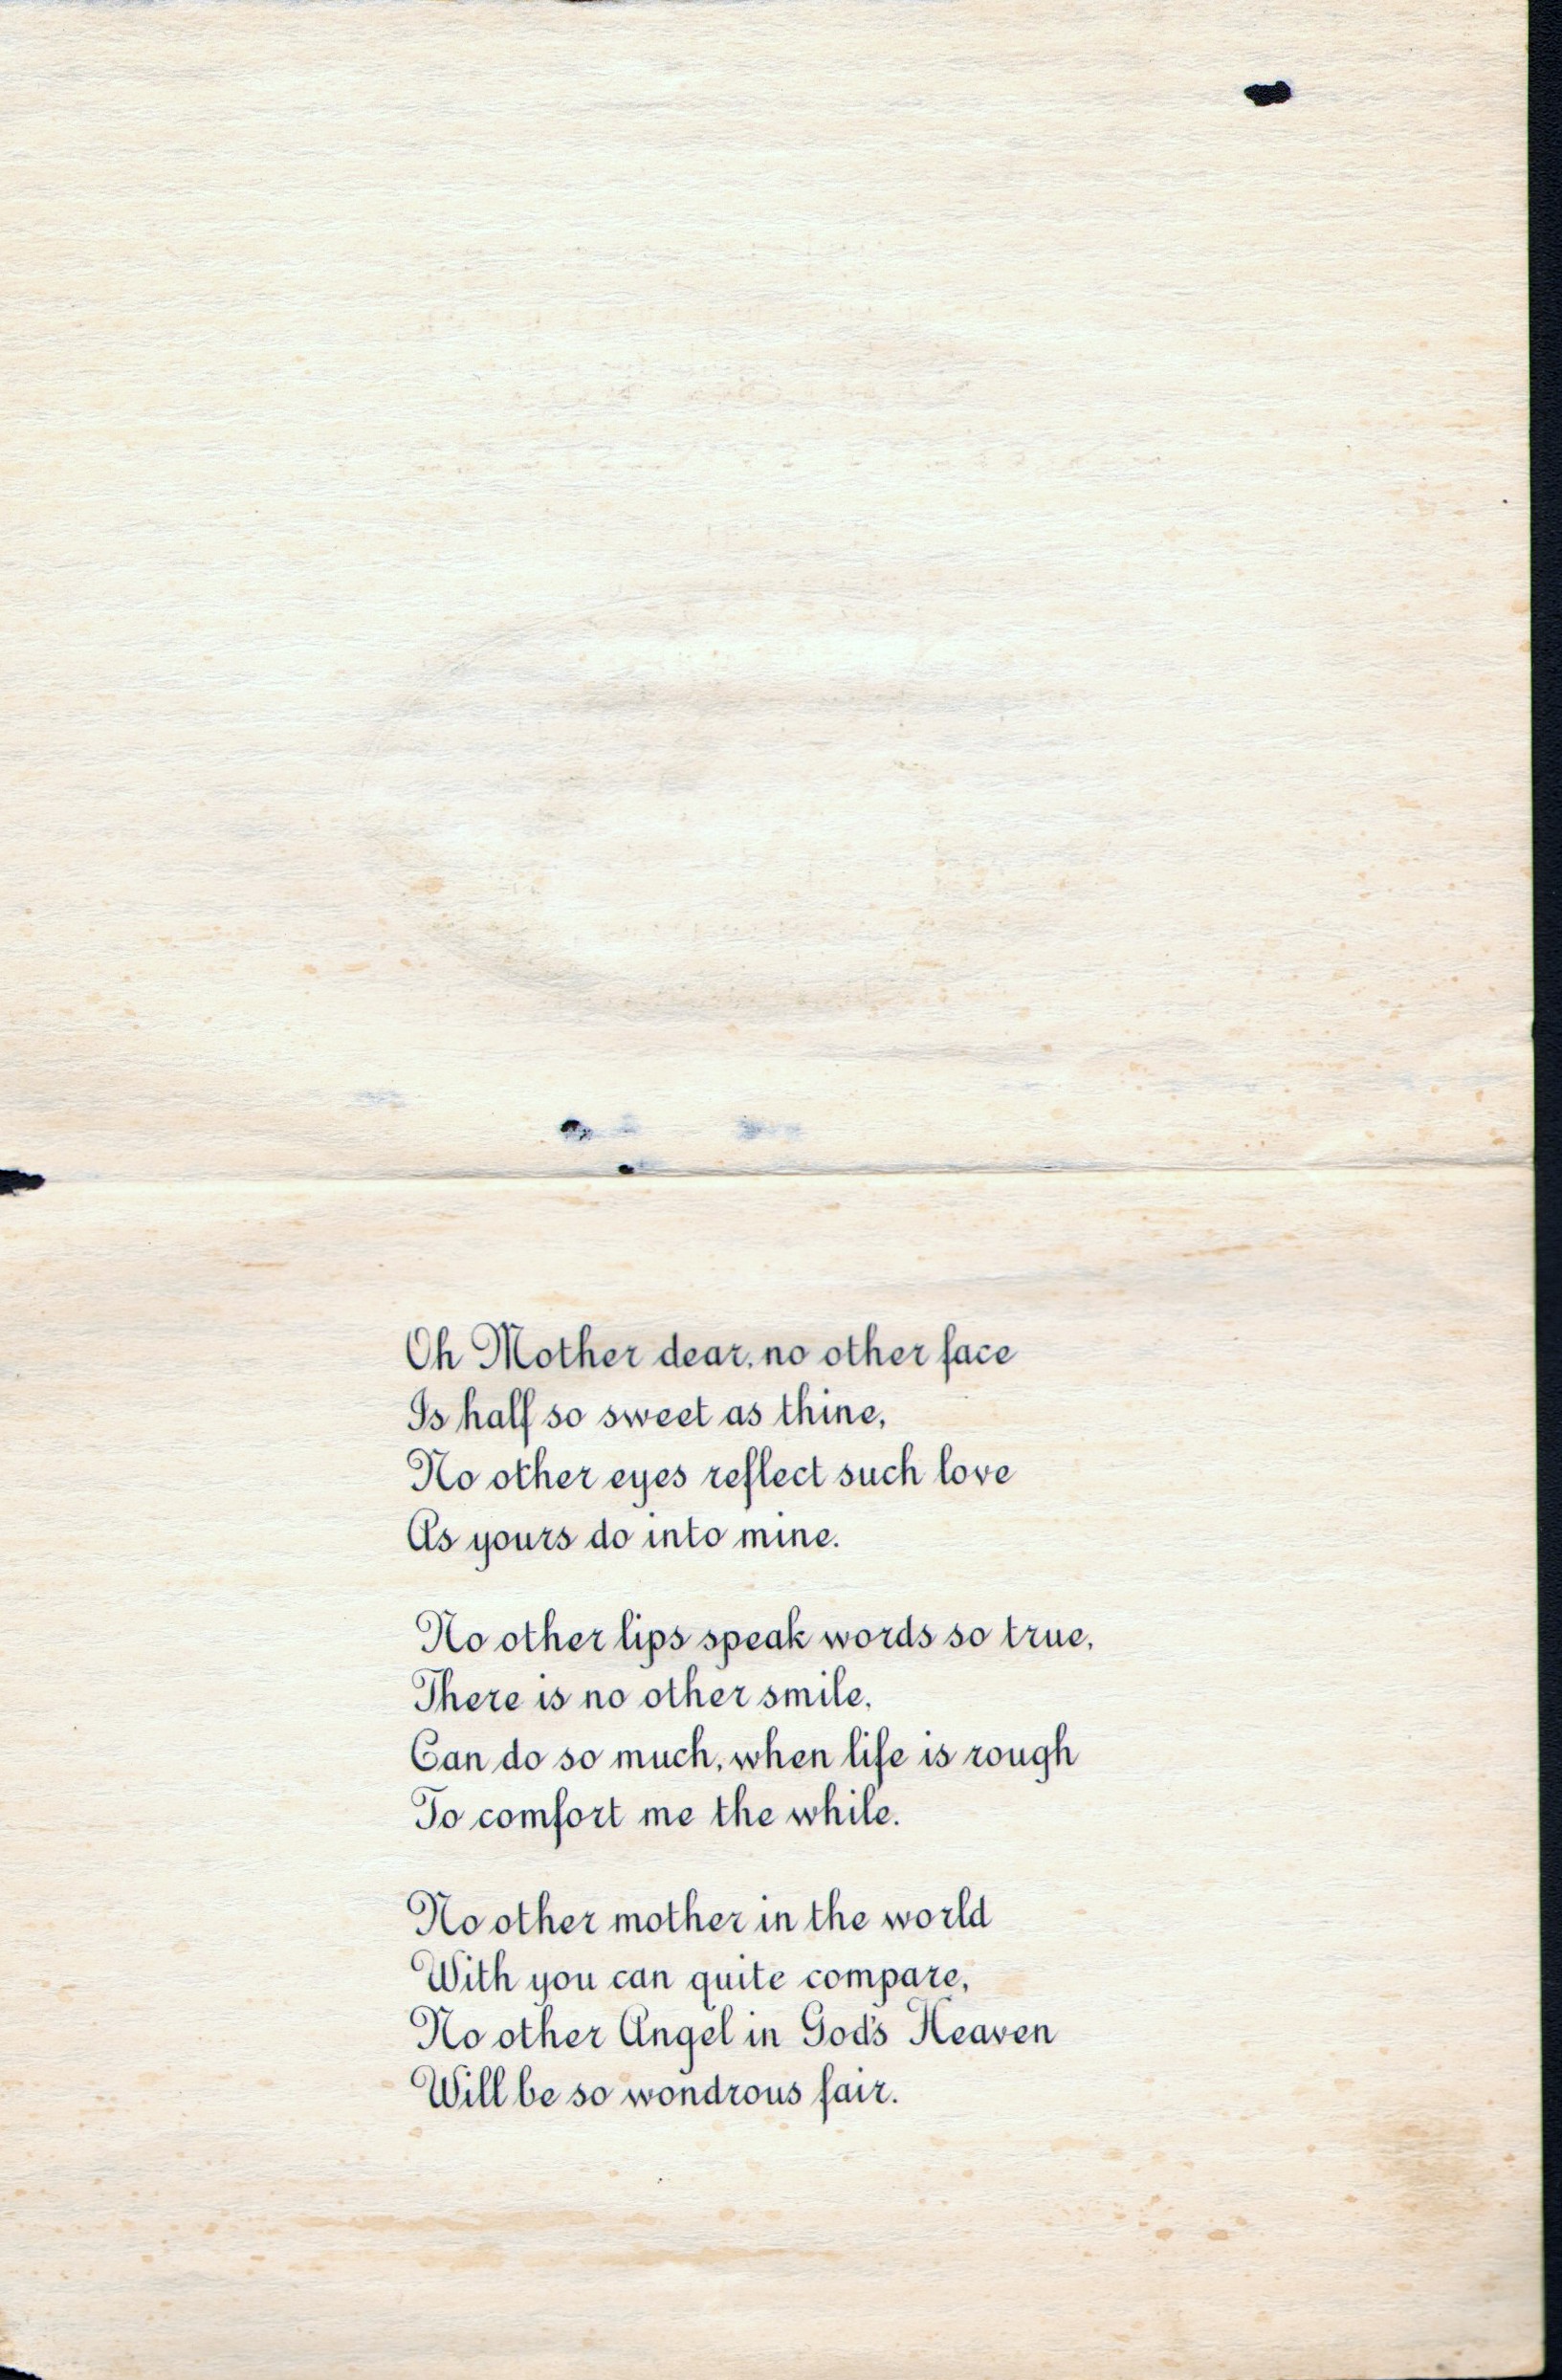 Oh Mother dear, no other face
Is half so sweet as thine,
No other eyes reflect such love
As yours do into mine.
No other lips speak words so true,
There is no other smile,
Can do so much, when life is rough
To comfort me the while.
No other mother in the world
With you can quite compare,
No other Angel in God's Heaven
Will be so wondrous fair.